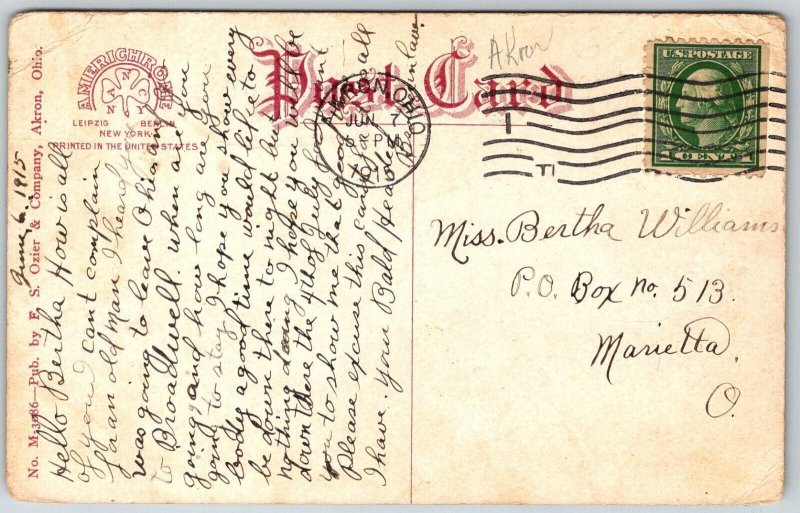 No. M-3986—Pub. by F. S. Ozier & Company, Akron, Ohio.
June, 6, 1915
AMERICHROME
LEIPZIG BERLIN
NEW YORK
PRINTED IN THE UNITED STATES
Post Card
Akron
AKRON, OHIO
JUN 7
PM
U.S. POSTAGE
1 CENT 1
Hello Bertha How is all
of you. I can't complain
for an old man I heard you
was going to leave Ohio and
to Broadwell. when are you
going and how long are you
going to stay. I hope you show every
body a good time would like to
be down there to night but will be
nothing doing. I hope you won't
down there the 4th of July for
you to show me that good
Please excuse this card as it is all
I have. your Bald Headed
Miss. Bertha Williams
P.O. Box no. 513.
Marietta.
O.